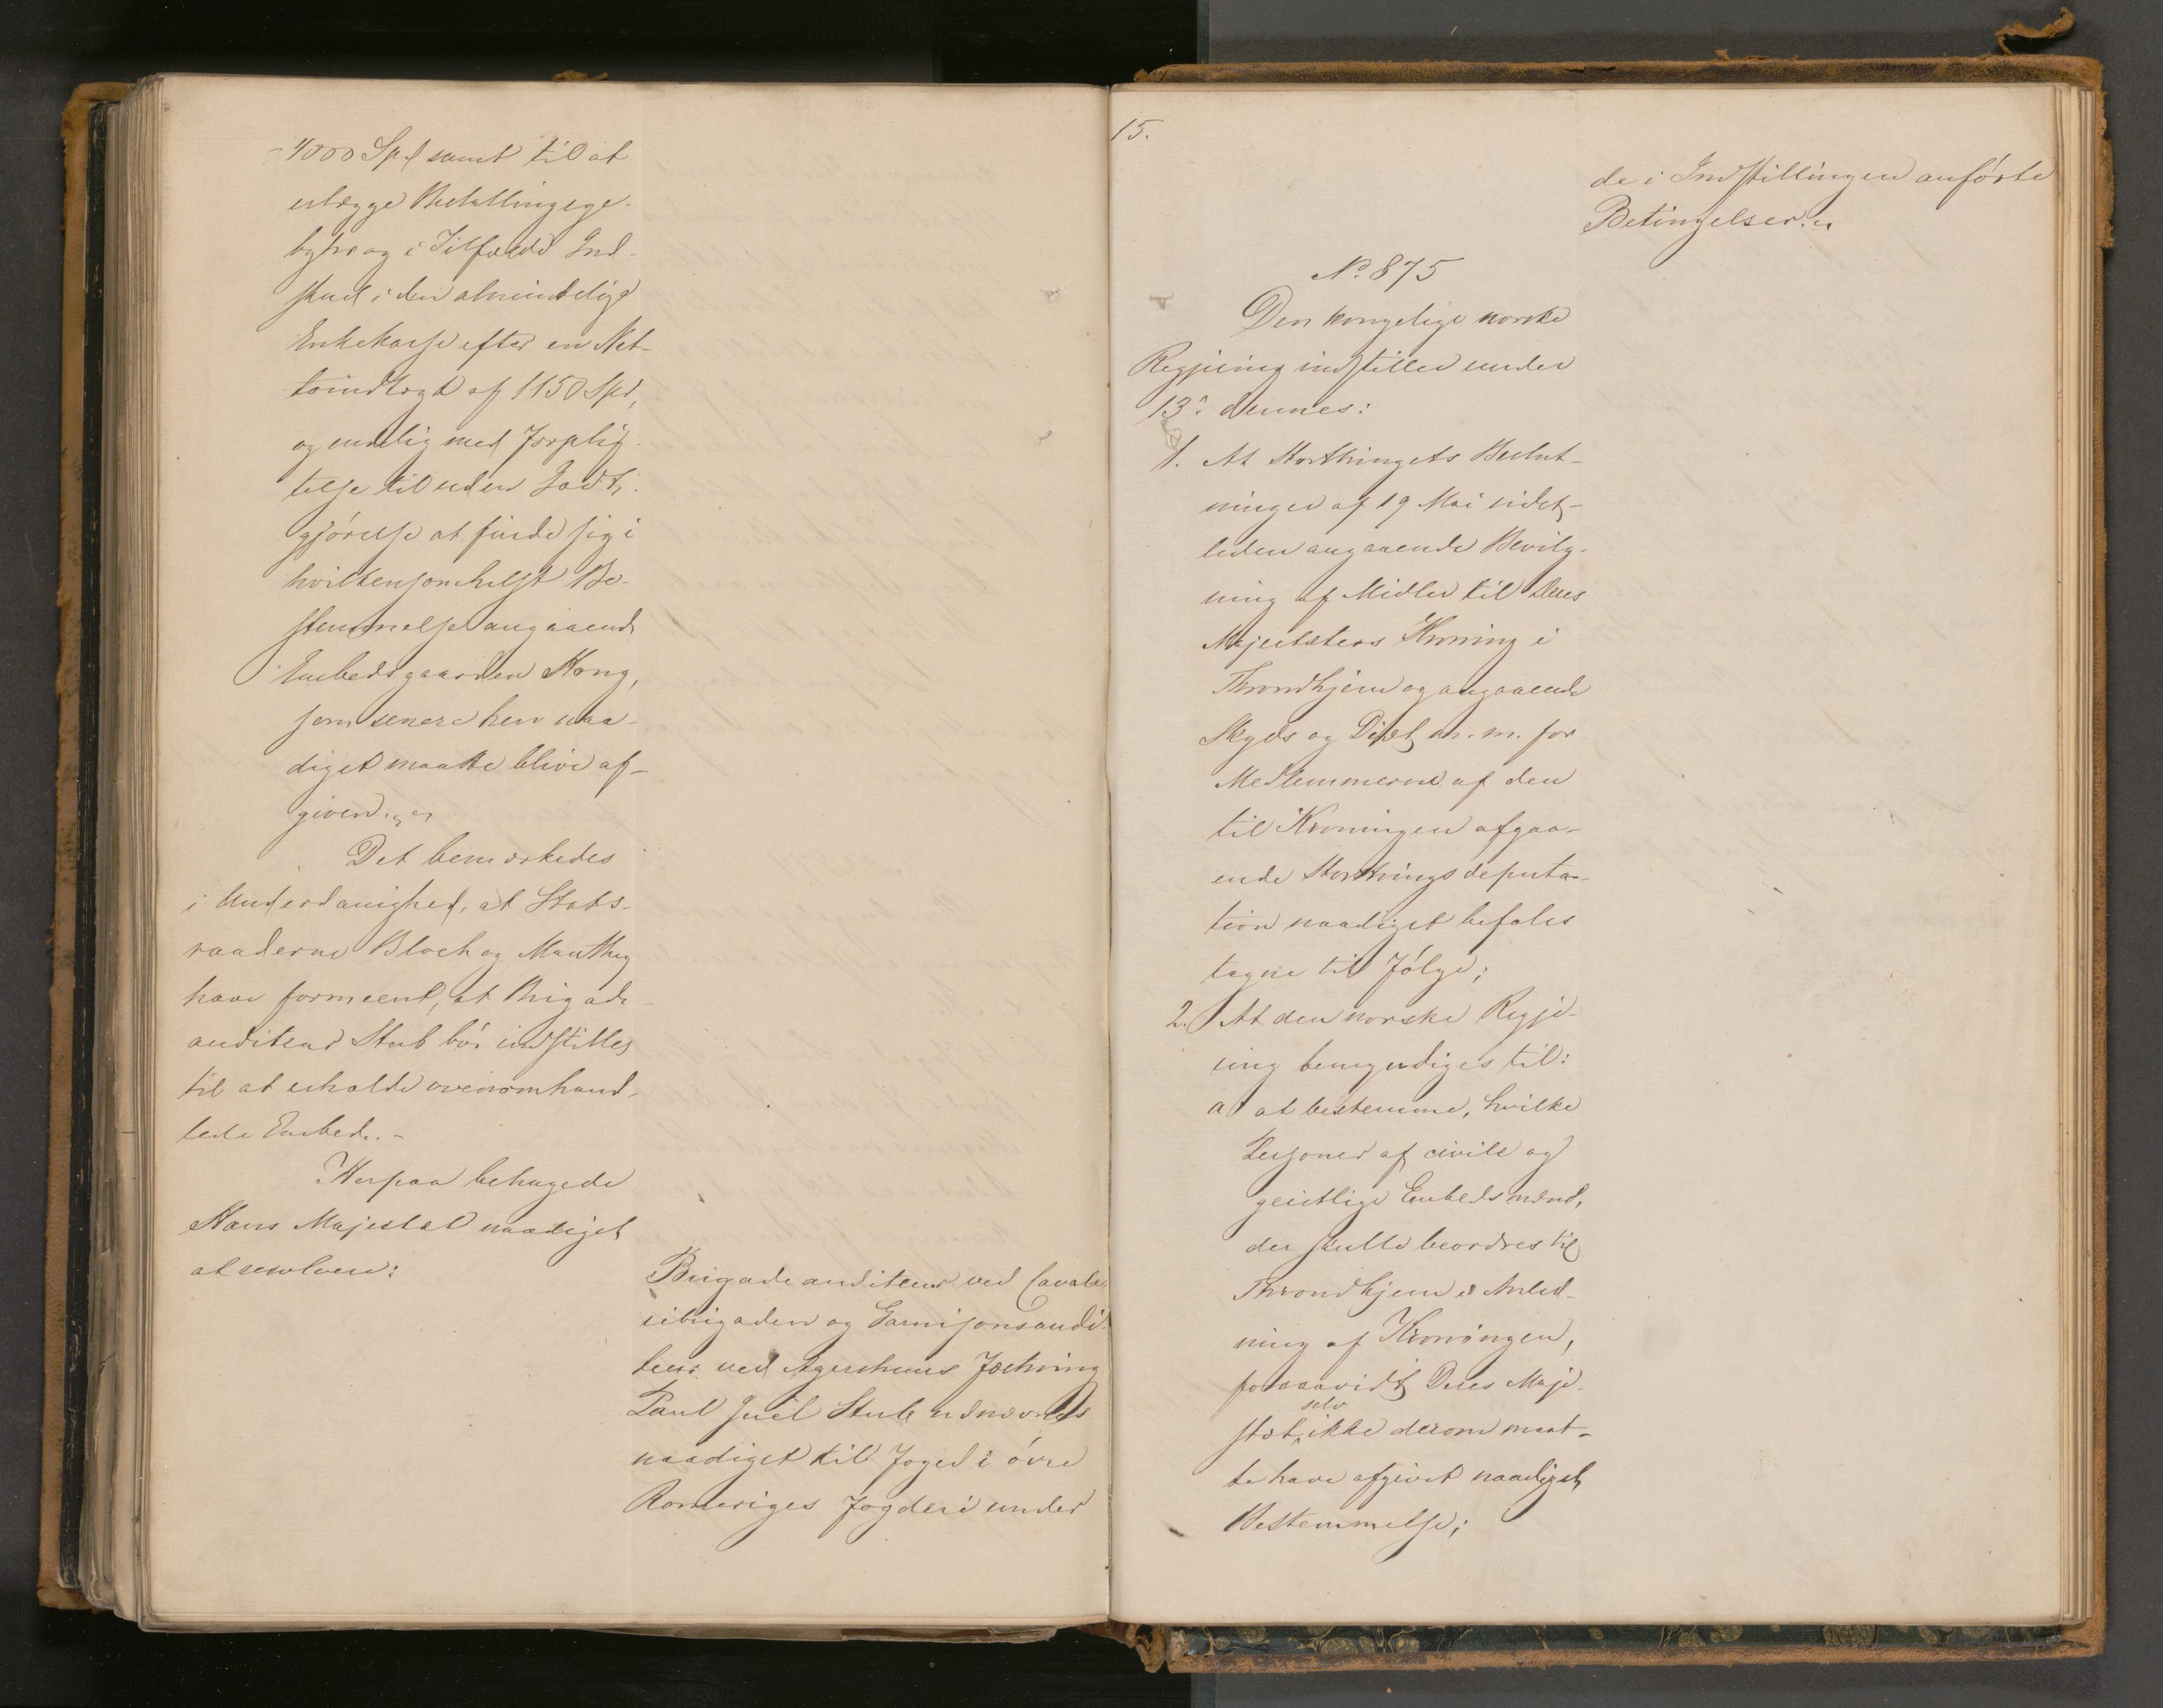 4000 Spd samt til at
erlægge Bestallingsge-
byhr og i Tilfælde Ind-
skud i den almindelige
Enkekasse efter en Net-
toindtægt af 1150 Spd,
og endelig med Forplig-
telse til uden Godt-
gjörelse at finde sig i
hvilkensomhelst Be-
stemmelse angaaende
Embedsgaarden Hong,
som senere hen naa-
digst maatte blive af-
given.
Det bemærkedes
i Underdanighed, at Stats-
raaderne Bloch og Manthey
have formeent, at Brigade-
auditeur Stub bör indstilles
til at erholde ovenomhand-
lede Embede. -
Herpaa behagede
Hans Majestæt naadigst
at resolvere:
Brigadeauditeur ved Cavale-
ribrigaden og Garnisonsaudi-
teur ved Agershuus Fæstning
Paul Juel Stub udnævnes
naadigst til Foged i övre
Romeriges Fogderi under
15.
de i Indstillingen anförte
Betingelser.
No. 875
Den kongelige norske
Regjering indstiller under
13de dennes:
1. At Storthingets Beslut-
ninger af 19 Mai sidst-
leden angaaende Bevilg-
ning af Midler til Deres
Majestæters Kroning i
Throndhjem og angaaende
Skyds og Diæt m. m. for
Medlemmerne af den
til Kroningen afgaa-
ende Storthingsdeputa-
tion naadigst befales
tagne til Fölge;
2. At den norske Regje-
ring bemyndiges til:
a at bestemme, hvilke
Personer af civile og
geistlige Embedsmænd,
der skulle beordres til
Throndhjem i Anled-
ning af Kroningen,
forsaavidt Deres Maje-
stæt selv ikke derom maat-
te have afgivet naadigst
Bestemmelse;